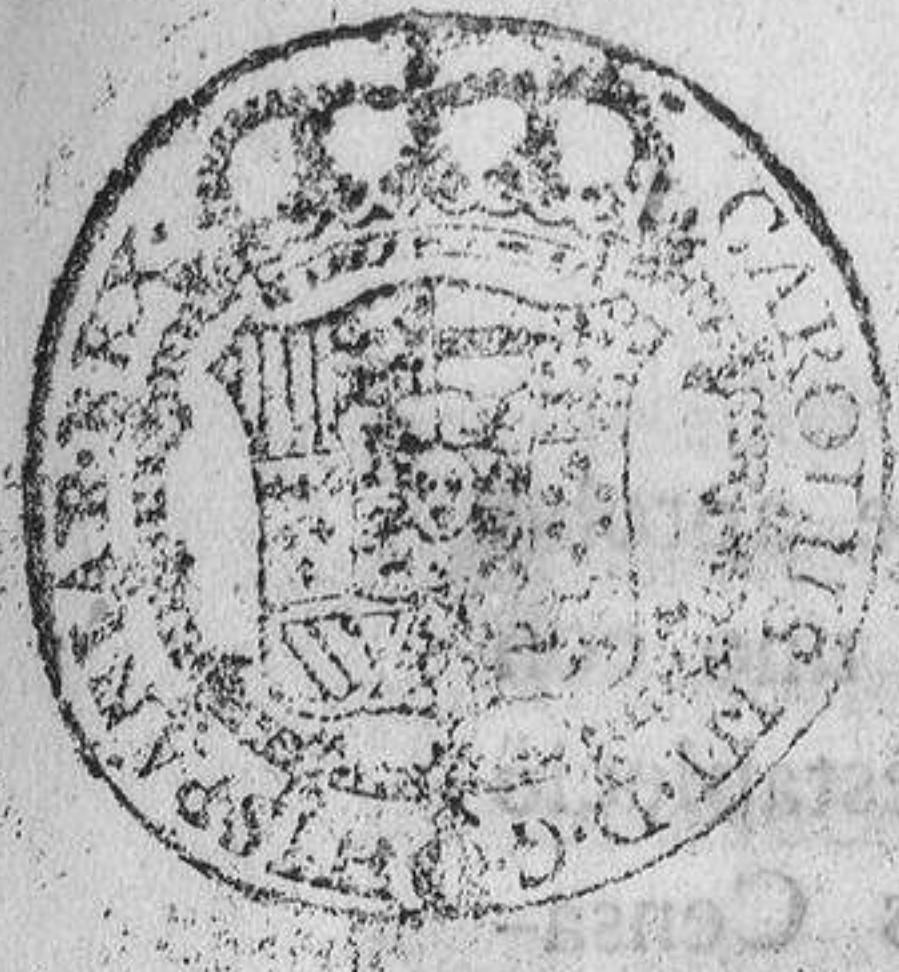 CAROLUS III·D·G·HISPANIAR·REX·
Censa-